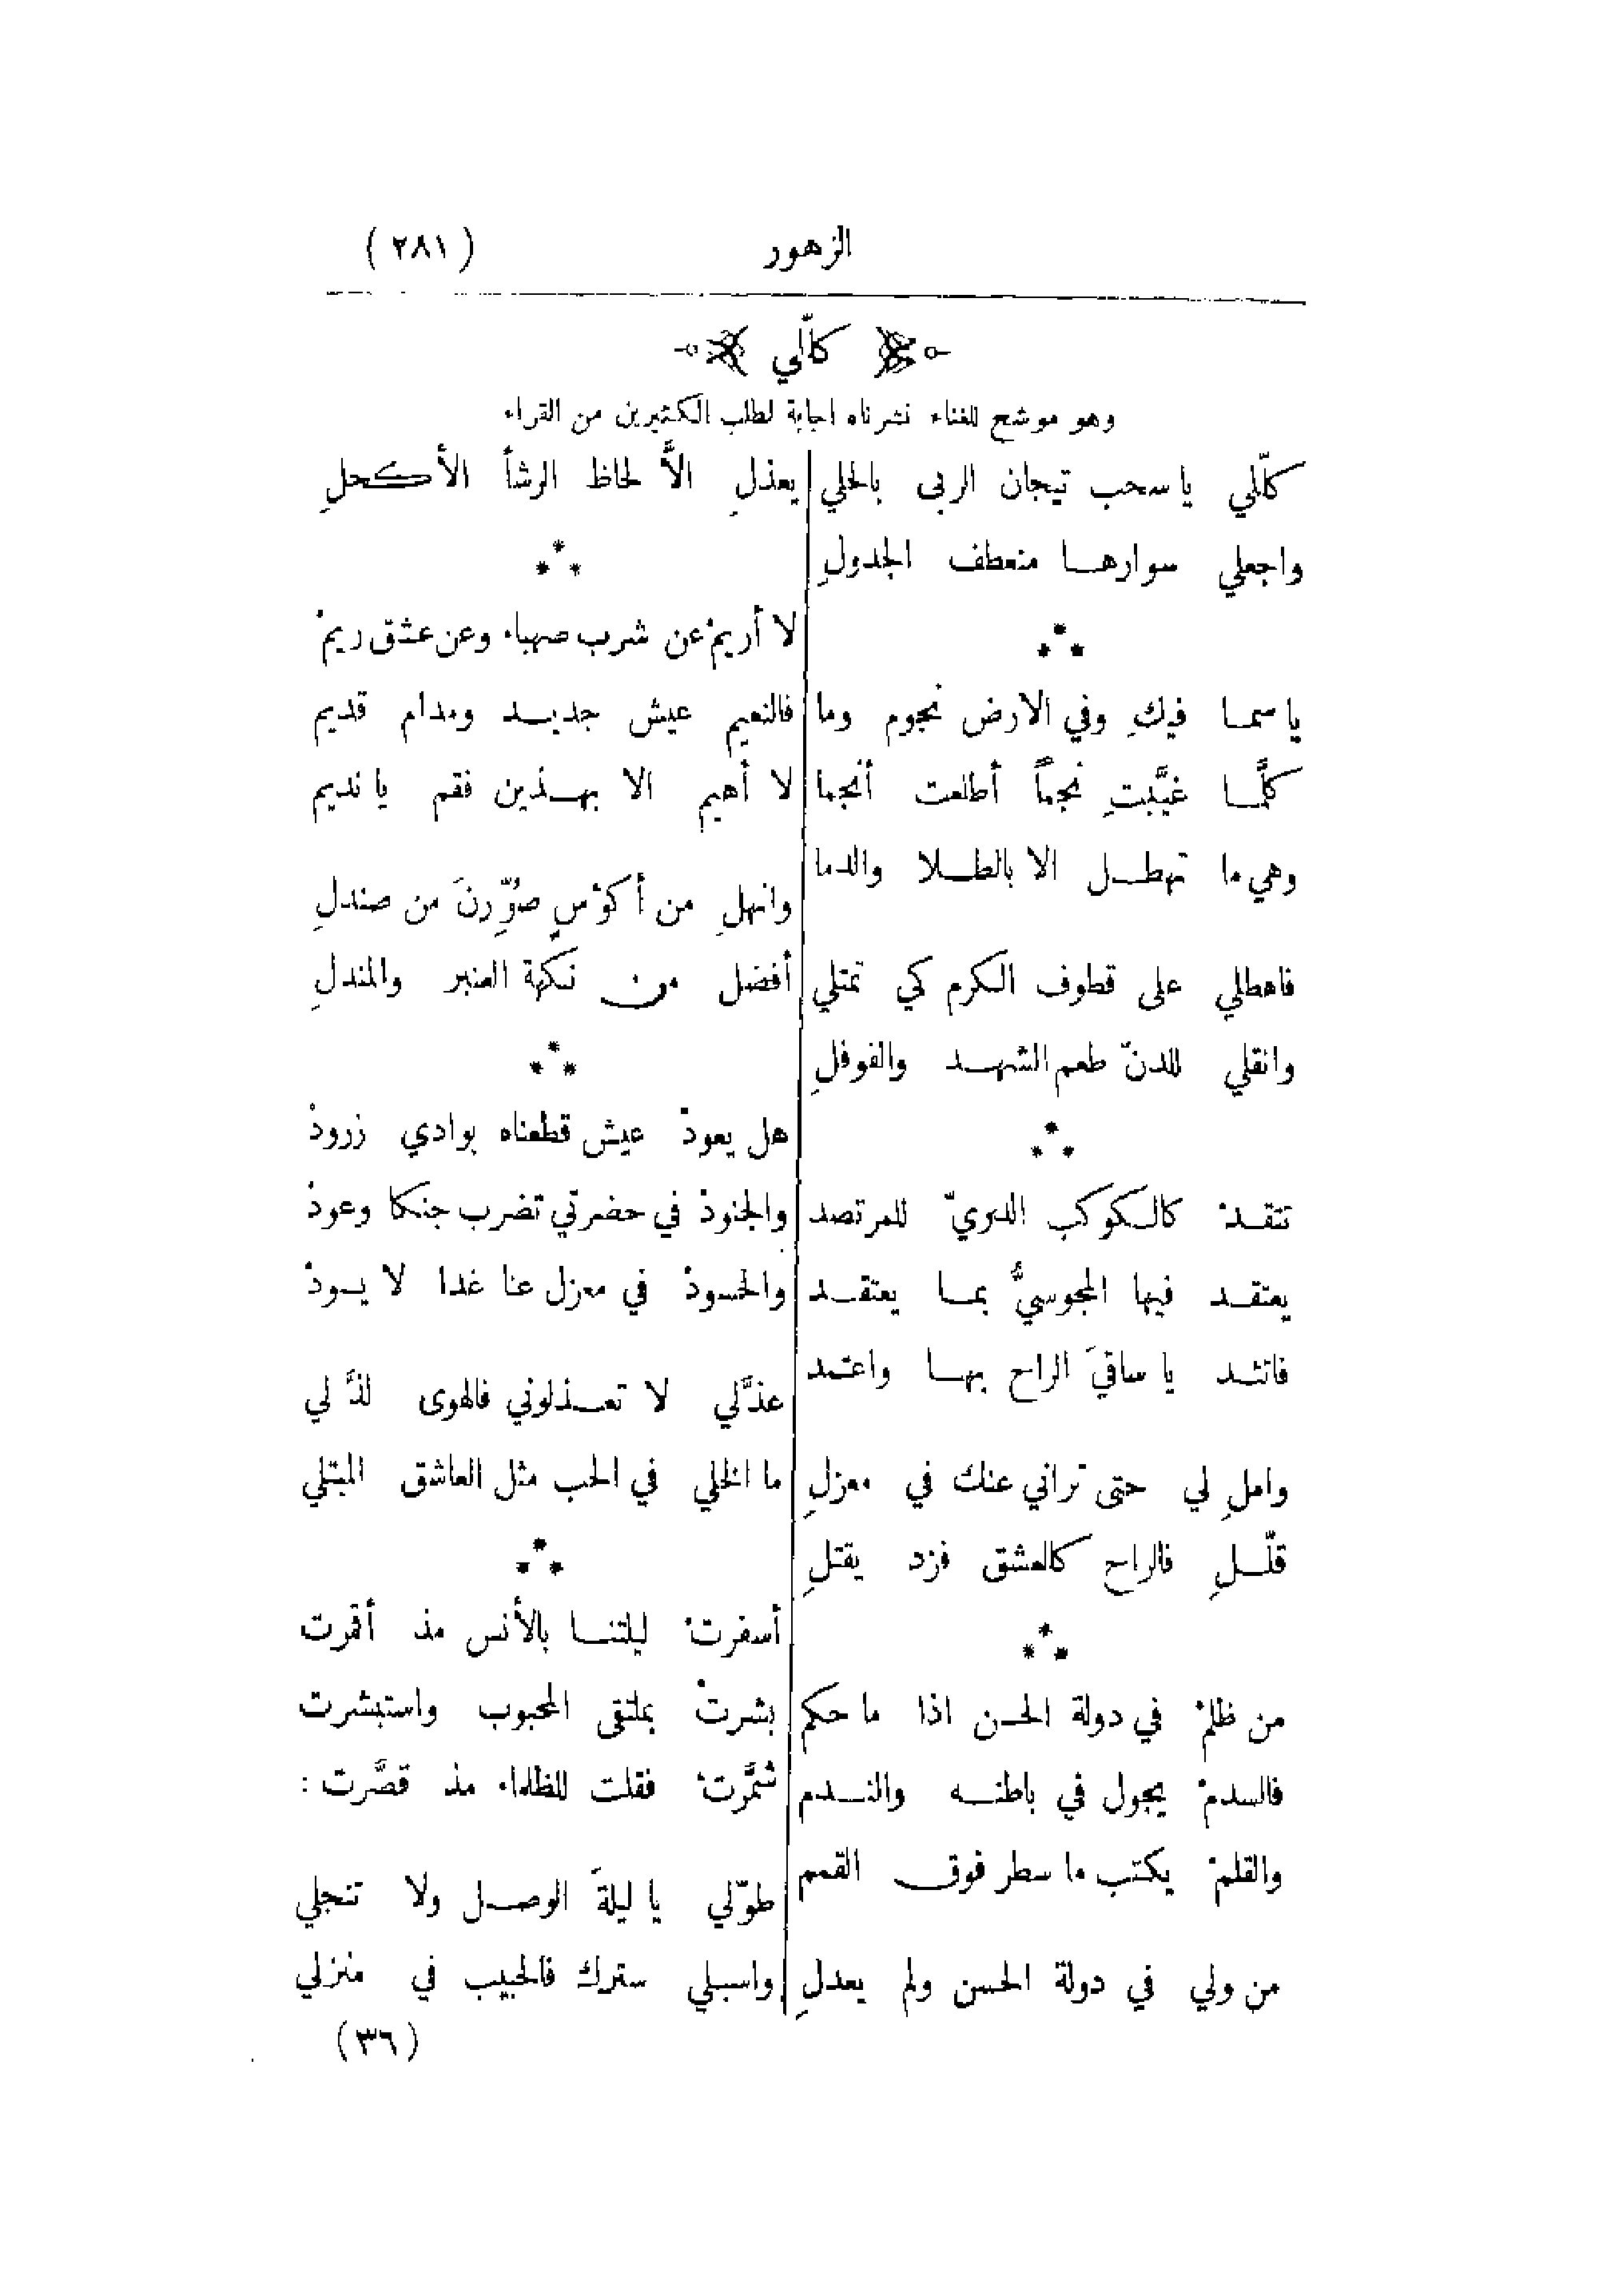 الزهور
( ٢٨١ )
كلّلي
وهو موشح للغناء نشرناه اجابة لطلب الكثيرين من القراء
كلّلي يا سحب تيجان الربى بالحلي
واجعلي سوارهـا منعطف الجدولِ
***
يا سمـا فيكِ وفي الارض نجوم وما
كلَّمـا غيَّبتِ نجماً أطلعت أنجما
وهي ما تهطـل الا بالطـلا والدما
فاهطلي على قطوف الكرم كي تمتلي
وانقلي للدنّ طعم الشهـد والفوفلِ
***
تتقـدْ كالكوكب الدريّ للمرتصد
يعتقـد فيها المجوسيُّ بمـا يعتقـد
فاتئـد يا ساقيَ الراح بهـا واعتمد
واملِ لي حتى تراني عنك في معزلِ
قلّـلِ فالراح كالعشق فزد يقتلِ
***
من ظلمْ في دولة الحسن اذا ما حكم
فالسدمْ يجول في باطنـه والنـدم
والقلمْ يكتب ما سطر فوق القمم
من ولي في دولة الحسن ولم يعدلِ
يعذلِ الاَّ لحاظ الرشأ الأكحلِ
***
لا أريمْ عن شرب صهباء وعن عشق ريمْ
فالنعيم عيش جديـد ومدام قديم
لا أهيم الا بهـذين فقم يا نديم
وانهلِ من أكؤس صُوِّرنَ من صندلِ
أفضل من نكهة العنبر والمندلِ
***
هل يعودْ عيش قطعناه بوادي زرودْ
والجنودْ في حضرتي تضرب جنكا وعودْ
والحسودْ في معزل عنا غدا لا يـسودْ
عذَّلي لا تعـذلوني فالهوى لذَّ لي
ما الخلي في الحب مثل العاشق المبتلي
***
أسفرتْ ليلتنـا بالأنس مذ أقمرت
بشرتْ بملتقى المحبوب واستبشرت
شمَّرتْ فقلت للظلماء مذ قصَّرت :
طوّلي يا ليلةَ الوصـل ولا تنجلي
واسبـلي سترك فالحبيب في منزلي
(٣٦)